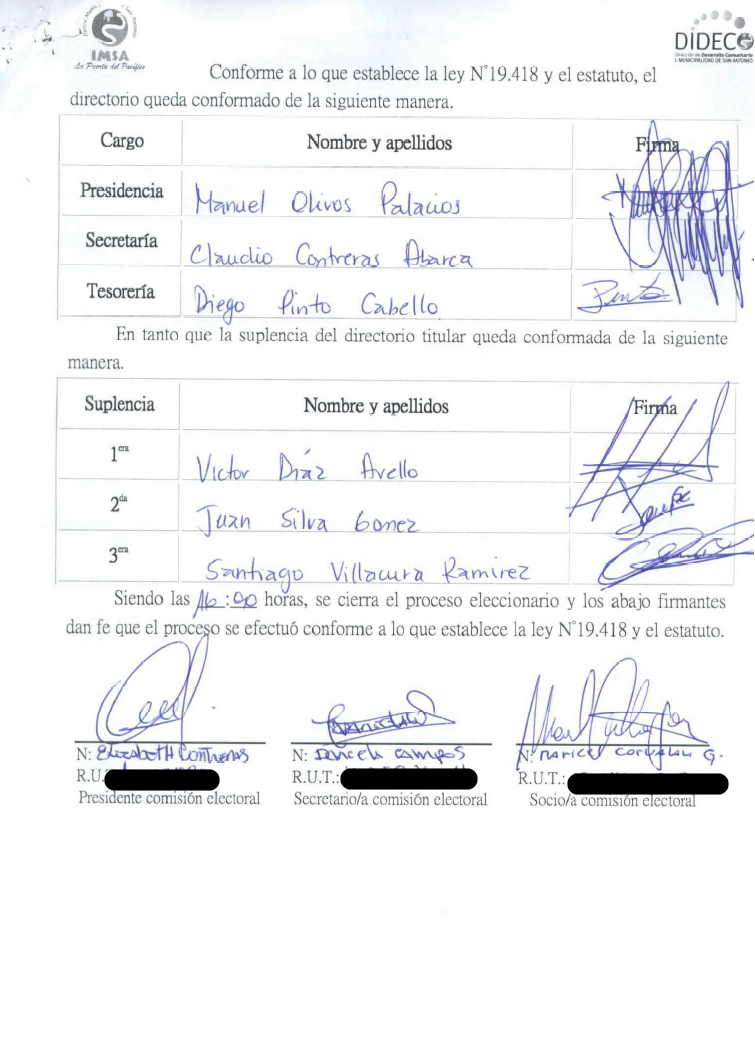 IMSA
La Puerta del Pacífico
DIDECO
Dirección de Desarrollo Comunitario
I. MUNICIPALIDAD DE SAN ANTONIO
Conforme a lo que establece la ley N°19.418 y el estatuto, el
directorio queda conformado de la siguiente manera.
Cargo Nombre y apellidos Firma
Presidencia Manuel Olivos Palacios
Secretaría Claudio Contreras Abarca
Tesorería Diego Pinto Cabello
En tanto que la suplencia del directorio titular queda conformada de la siguiente
manera.
Suplencia Nombre y apellidos Firma
1era Victor Díaz Avello
2da Juan Silva Gomez
3era Santiago Villacura Ramirez
Siendo las 16:00 horas, se cierra el proceso eleccionario y los abajo firmantes
dan fe que el proceso se efectuó conforme a lo que establece la ley N°19.418 y el estatuto.
N: Elizabeth Contreras N: Daniela Campos N: Maricel Corvalan G.
R.U. R.U.T.: R.U.T.:
Presidente comisión electoral Secretario/a comisión electoral Socio/a comisión electoral